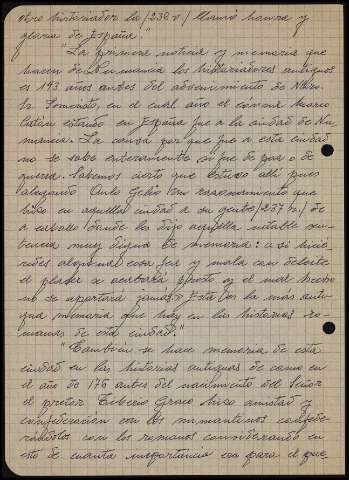 otro historiador la /236 v./ llamó honra y
gloria de España."
"La primera noticia y memoria que
hacen de Numancia los historiadores antiguos
es 193 años antes del advenimiento de Ntro.
Sr. Jesucristo, en el cual año el cónsul Marco
Catón estando en España fue a la ciudad de Nu
mancia. La causa por que fue a esta ciudad
no se sabe enteramente si fue de paz o de
guerra. Sabemos cierto que estuvo allí pues
alegando Aulo Gelio un razonamiento que
hizo en aquella ciudad a su gente /237 r./ de
a caballo donde les dijo aquella notable sen-
tencia muy digna de memoria: «si hicié-
redes alguna cosa fea y mala con deleite
el placer se acabará presto y el mal hecho
no se apartará jamás.» Esta es la más anti-
gua memoria que hay en las historias ro-
manas de esta ciudad."
"También se hace memoria de esta
ciudad en las historias antiguas de como en
el año de 176 antes del nacimiento del Señor
el pretor Tiberio Graco hizo amistad y
confederación con los numantinos confede-
rándolos con los romanos considerando en
esto de cuanta importancia era para el pue-